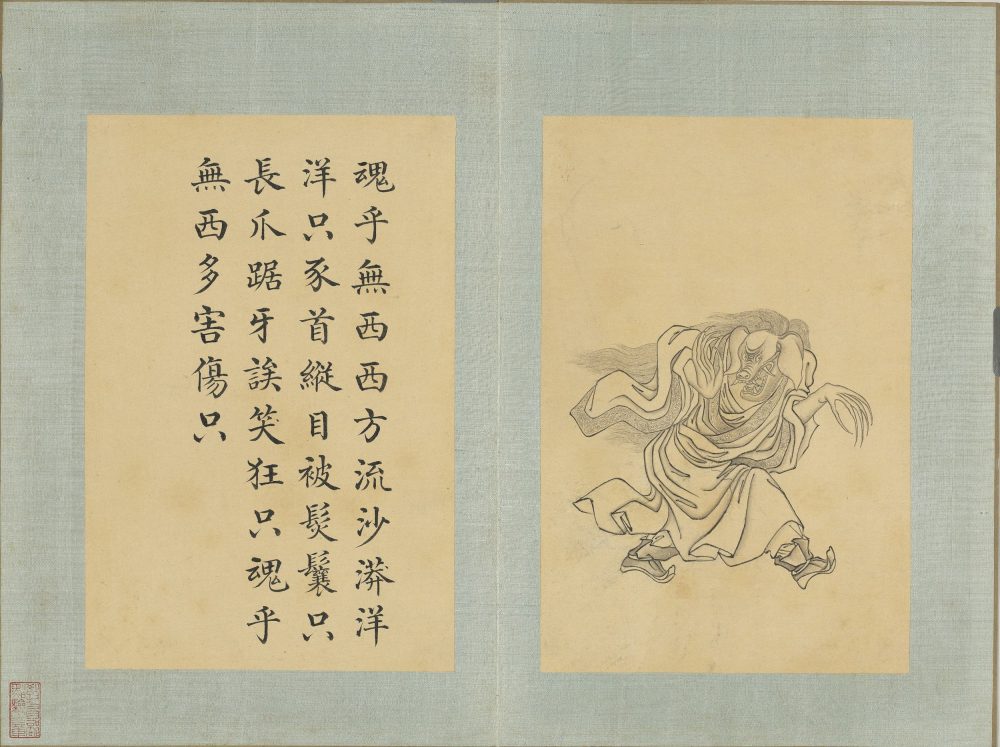 魂乎無西西方流沙漭洋
洋只豕首縱目被髮鬤只
長爪踞牙誒笑狂只魂乎
無西多害傷只